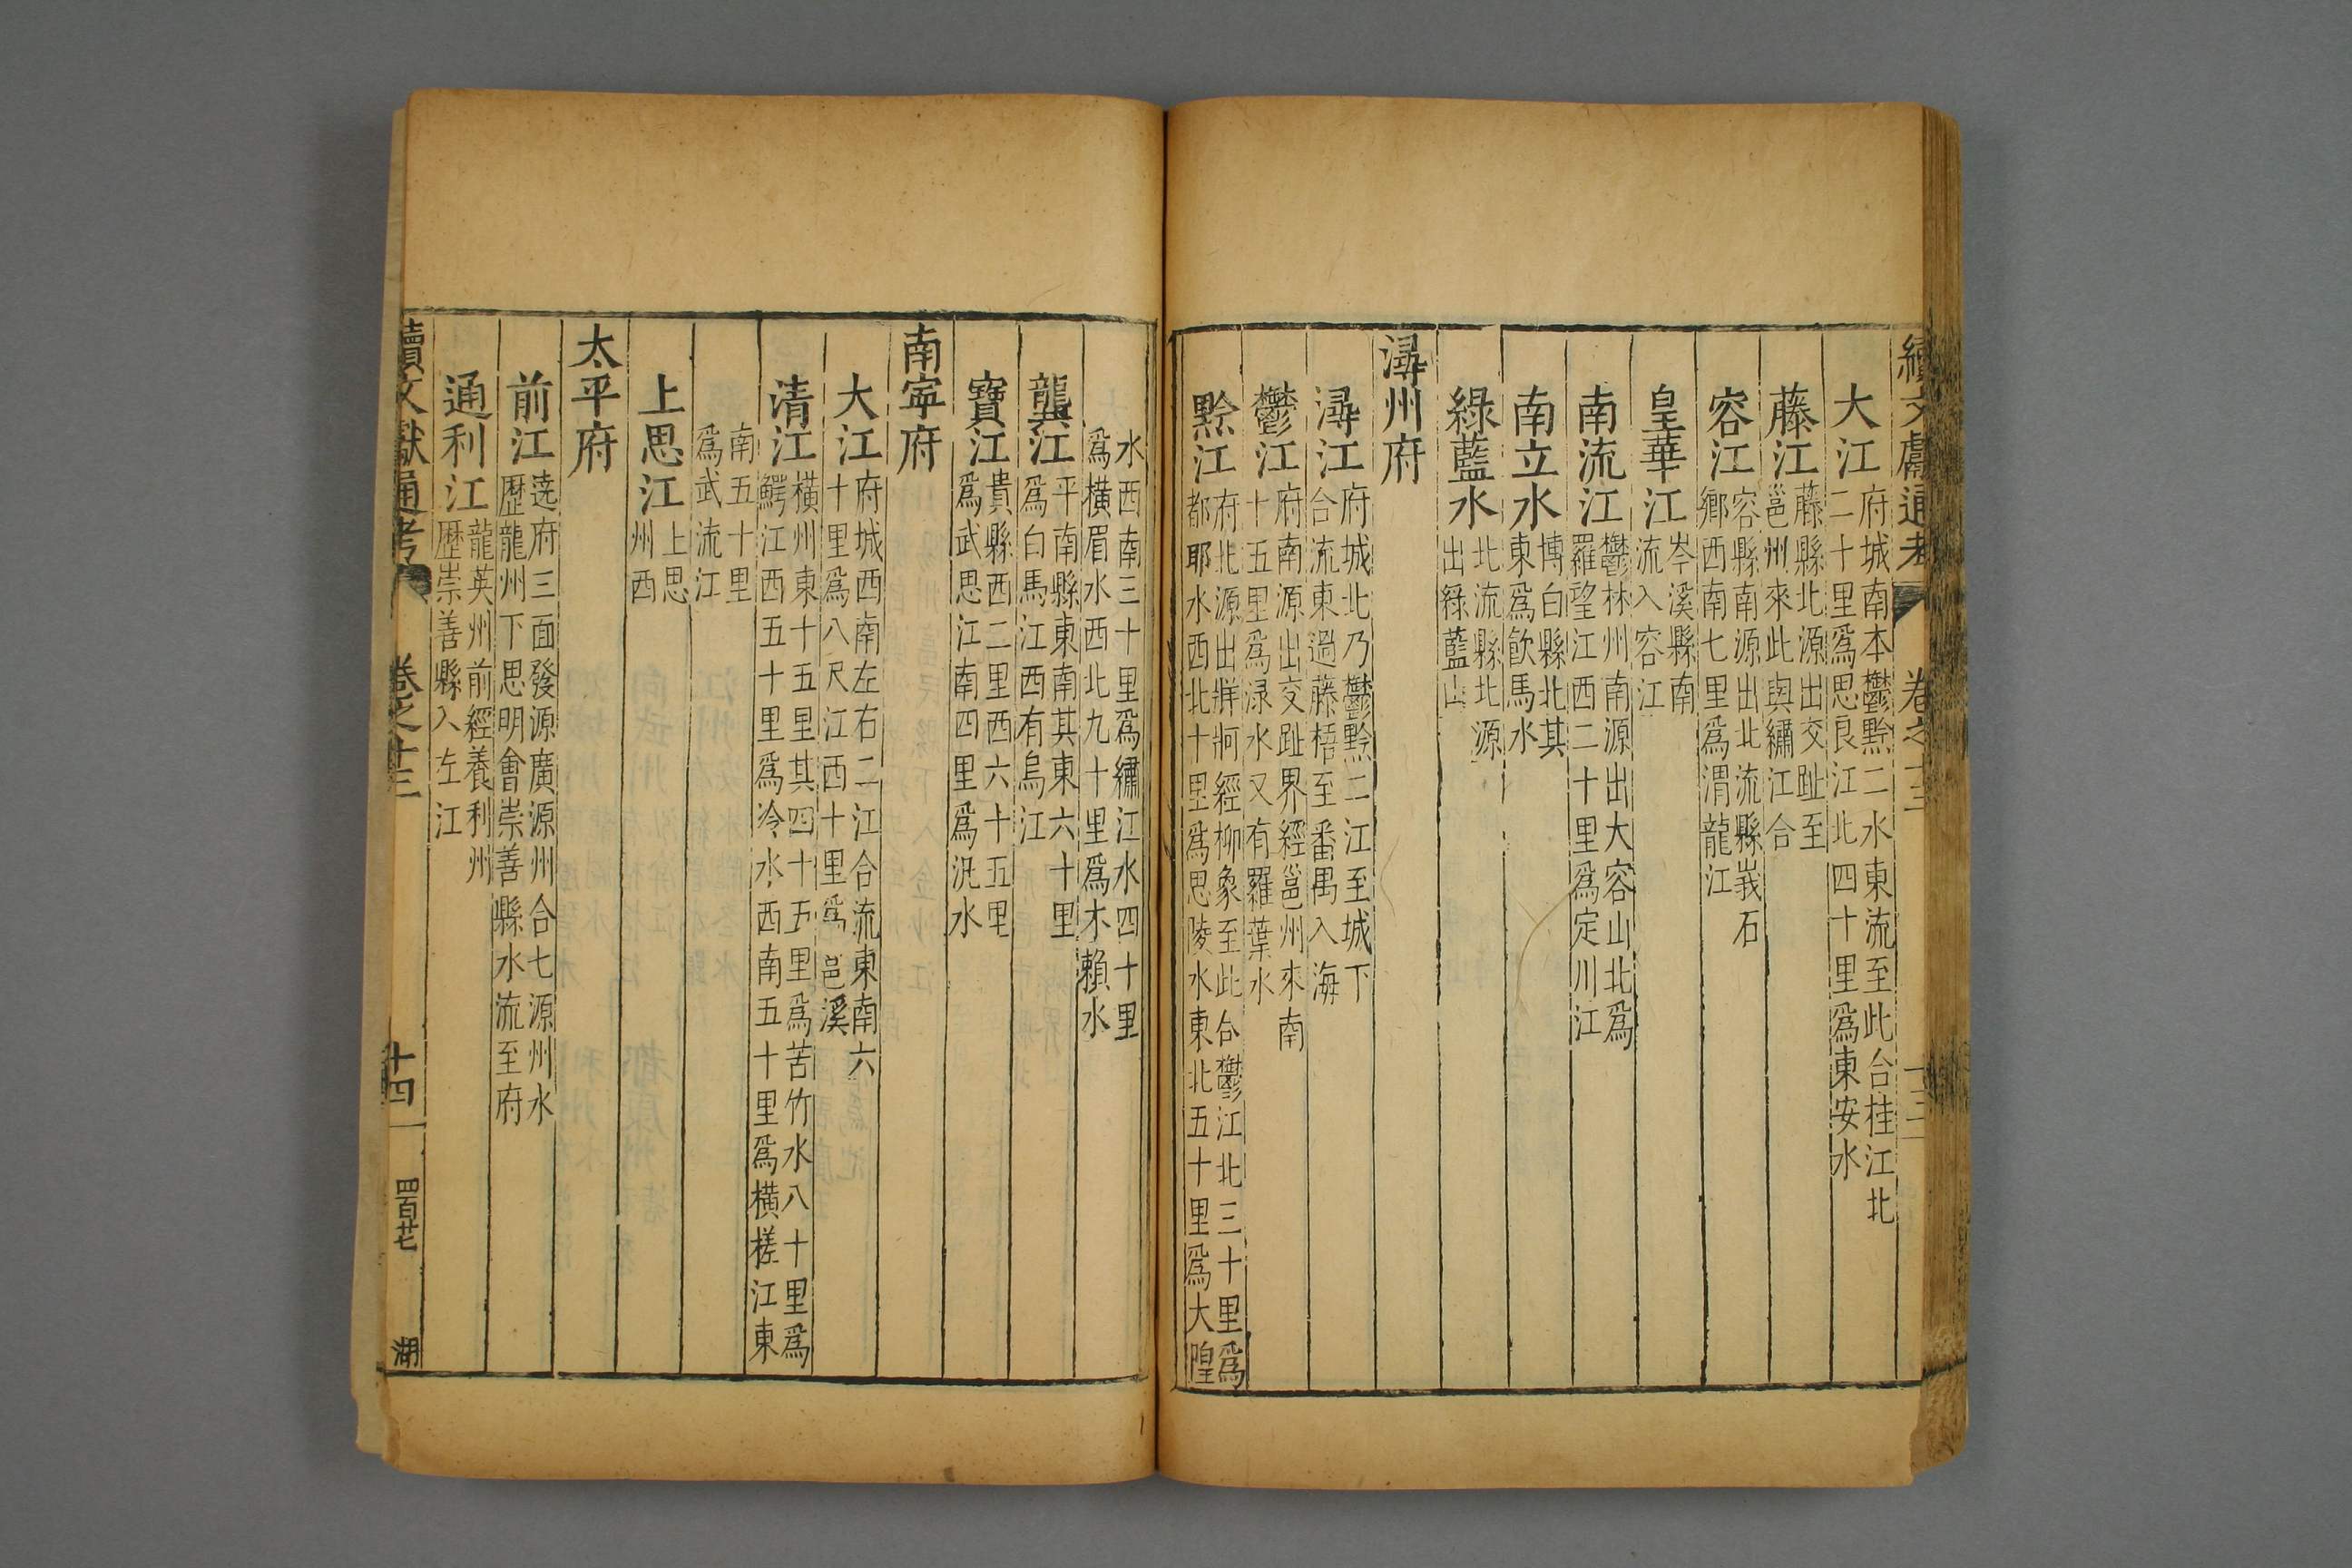 續文獻通考 卷之十三 十三
大江府城南本鬱黔二水東流至此合桂江北
二十里爲思良江北四十里爲東安水
藤江藤縣北源出交趾至
邕州來此與繡江合
容江容縣南源出北流縣峩石
鄉西南七里爲渭龍江
皇華江岑溪縣南
流入容江
南流江鬱林州南源出大容山北爲
羅望江西二十里爲定川江
南立水博白縣北其
東爲飲馬水
綠藍水北流縣北源
出綠藍山
潯州府
潯江府城北乃鬱黔二江至城下
合流東過藤梧至番禺入海
鬱江府南源出交趾界經邕州來南
十五里爲淥水又有羅葉水
黔江府北源出牂牁經柳象至此合鬱江北三十里爲
都耶水西北十里爲思陵水東北五十里爲大隍
水西南三十里爲繡江水四十里
爲橫眉水西北九十里爲木賴水
龔江平南縣東南其東六十里
爲白馬江西有烏江
寶江貴縣西二里西六十五里
爲武思江南四里爲汎水
南寧府
大江府城西南左右二江合流東南六
十里爲八尺江西十里爲邕溪
清江橫州東十五里其四十五里爲苦竹水八十里爲
鰐江西五十里爲冷水西南五十里爲橫槎江東
南五十里
爲武流江
上思江上思
州西
太平府
前江遶府三面發源廣源州合七源州水
歷龍州下思明會崇善縣水流至府
通利江龍英州前經養利州
歷崇善縣入左江
續文獻通考 卷之十三 十四 四百廿七 湖